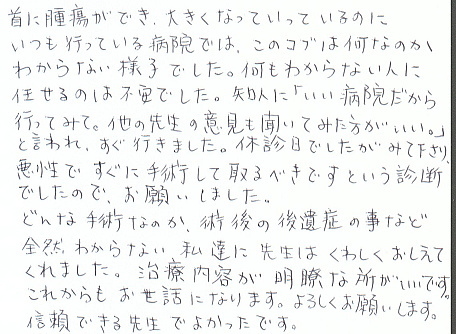 首に腫瘍ができ、大きくなっていっているのに
いつも行っている病院では、このコブは何なのか
わからない様子でした。何もわからない人に
任せるのは不安でした。知人に「いい病院だから
行ってみて。他の先生の意見も聞いてみた方がいい。」
と言われ、すぐ行きました。休診日でしたがみて下さり、
悪性で すぐに手術して取るべきですという診断
でしたので、お願いしました。
どんな手術なのか、術後の後遺症の事など
全然わからない 私達に 先生は くわしく おしえて
くれました。治療内容が 明瞭な所がいいです。
これからも お世話になります。よろしくお願いします。
信頼できる先生でよかったです。